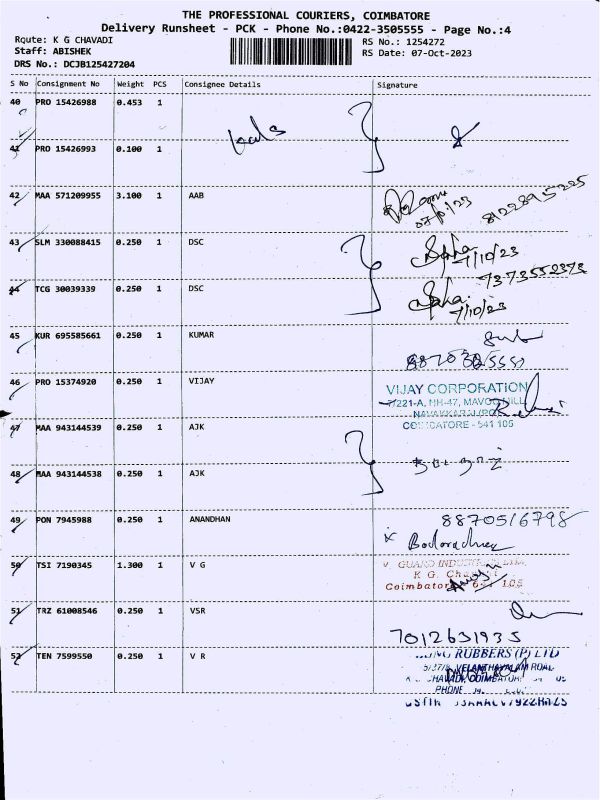 THE PROFESSIONAL COURIERS, COIMBATORE
Delivery Runsheet - PCK - Phone No.:0422-3505555 - Page No.:4
Route: K G CHAVADI
RS No.: 1254272
Staff: ABISHEK
RS Date: 07-Oct-2023
DRS No.: DCJB125427204
S No Consignment No Weight PCS Consignee Details Signature
40 PRO 15426988 0.453 1
41 PRO 15426993 0.100 1
42 MAA 571209955 3.100 1 AAB
8122895225
43 SLM 330088415 0.250 1 DSC
7/10/23
7373552373
44 TCG 30039339 0.250 1 DSC
7/10/23
45 KUR 695585661 0.250 1 KUMAR
46 PRO 15374920 0.250 1 VIJAY
VIJAY CORPORATION
47 MAA 943144539 0.250 1 AJK
48 MAA 943144538 0.250 1 AJK
49 PON 7945988 0.250 1 ANANDHAN
8870516798
50 TSI 7190345 1.300 1 V G
K G.
Coimbatore 641 105
51 TRZ 61008546 0.250 1 VSR
7012631935
52 TEN 7599550 0.250 1 V R
RUBBERS (P) LTD
PHONE